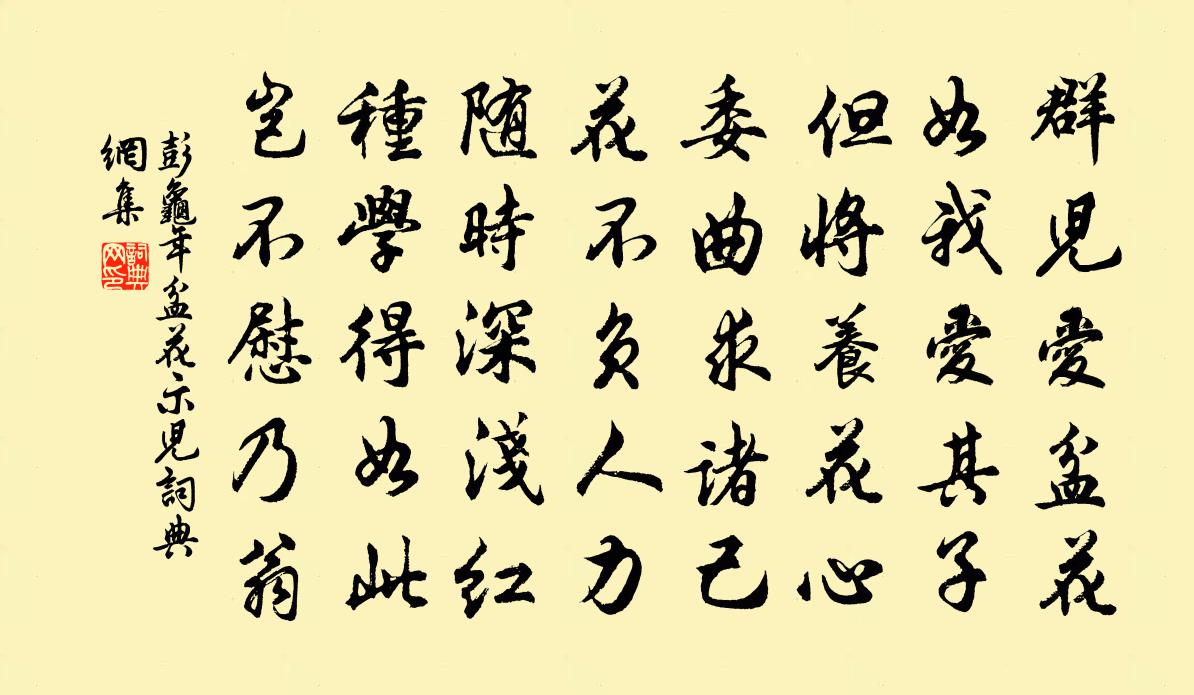 群児愛盆花
如我愛其子
但將養花心
委曲求諸己
花不負人力
随時深淺红
種學得如此
豈不慰乃翁
彭龜年盆花示児詞典
網集
詞典
网印